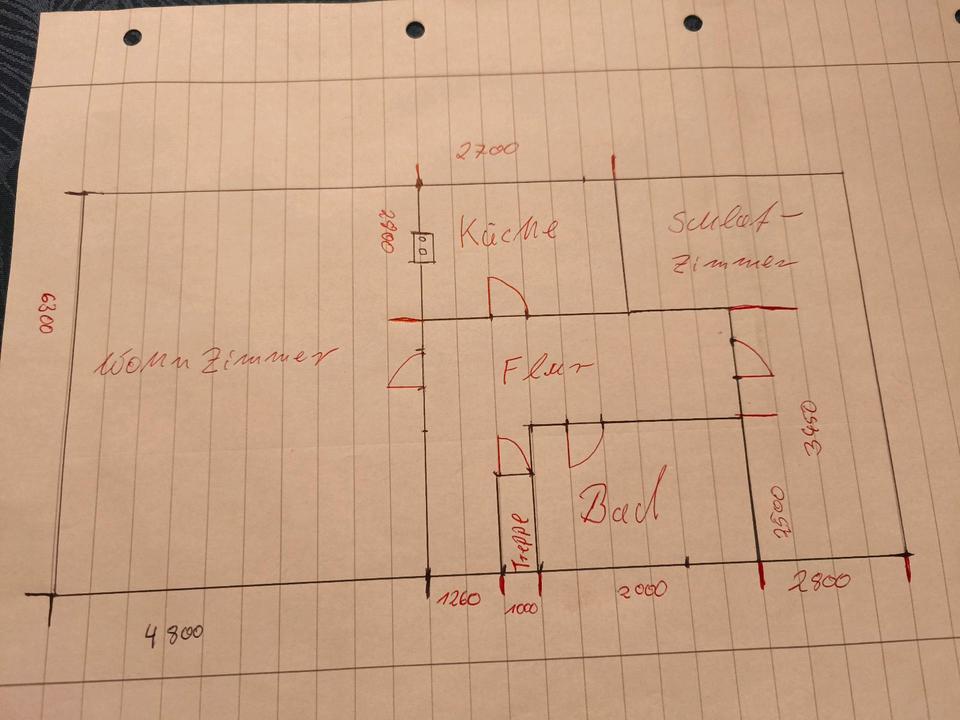 2700
2800
Küche
Schlaf-
Zimmer
6300
Wohnzimmer
Flur
3450
Treppe
Bad
2500
1260
1000
2000
2800
4800